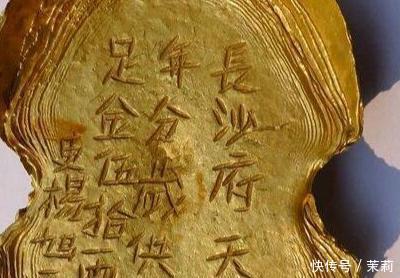 長沙府天
年分歲供
足金伍拾一兩
楊旭
快传号 / 茉莉